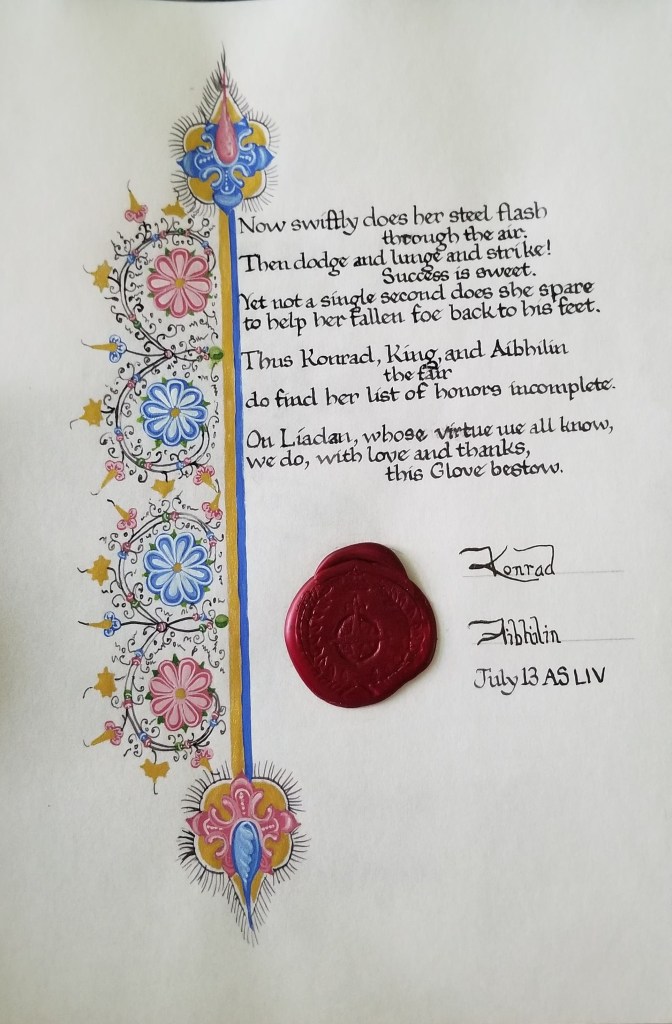 Now swiftly does her steel flash
through the air.
Then dodge and lunge and strike!
Success is sweet.
Yet not a single second does she spare
to help her fallen foe back to his feet.
Thus Konrad, King, and Aibhilin
the fair
do find her list of honors incomplete.
On Líadan, whose virtue we all know,
we do, with love and thanks,
this Glove bestow.
Konrad
Aibhilin
July 13 AS LIV